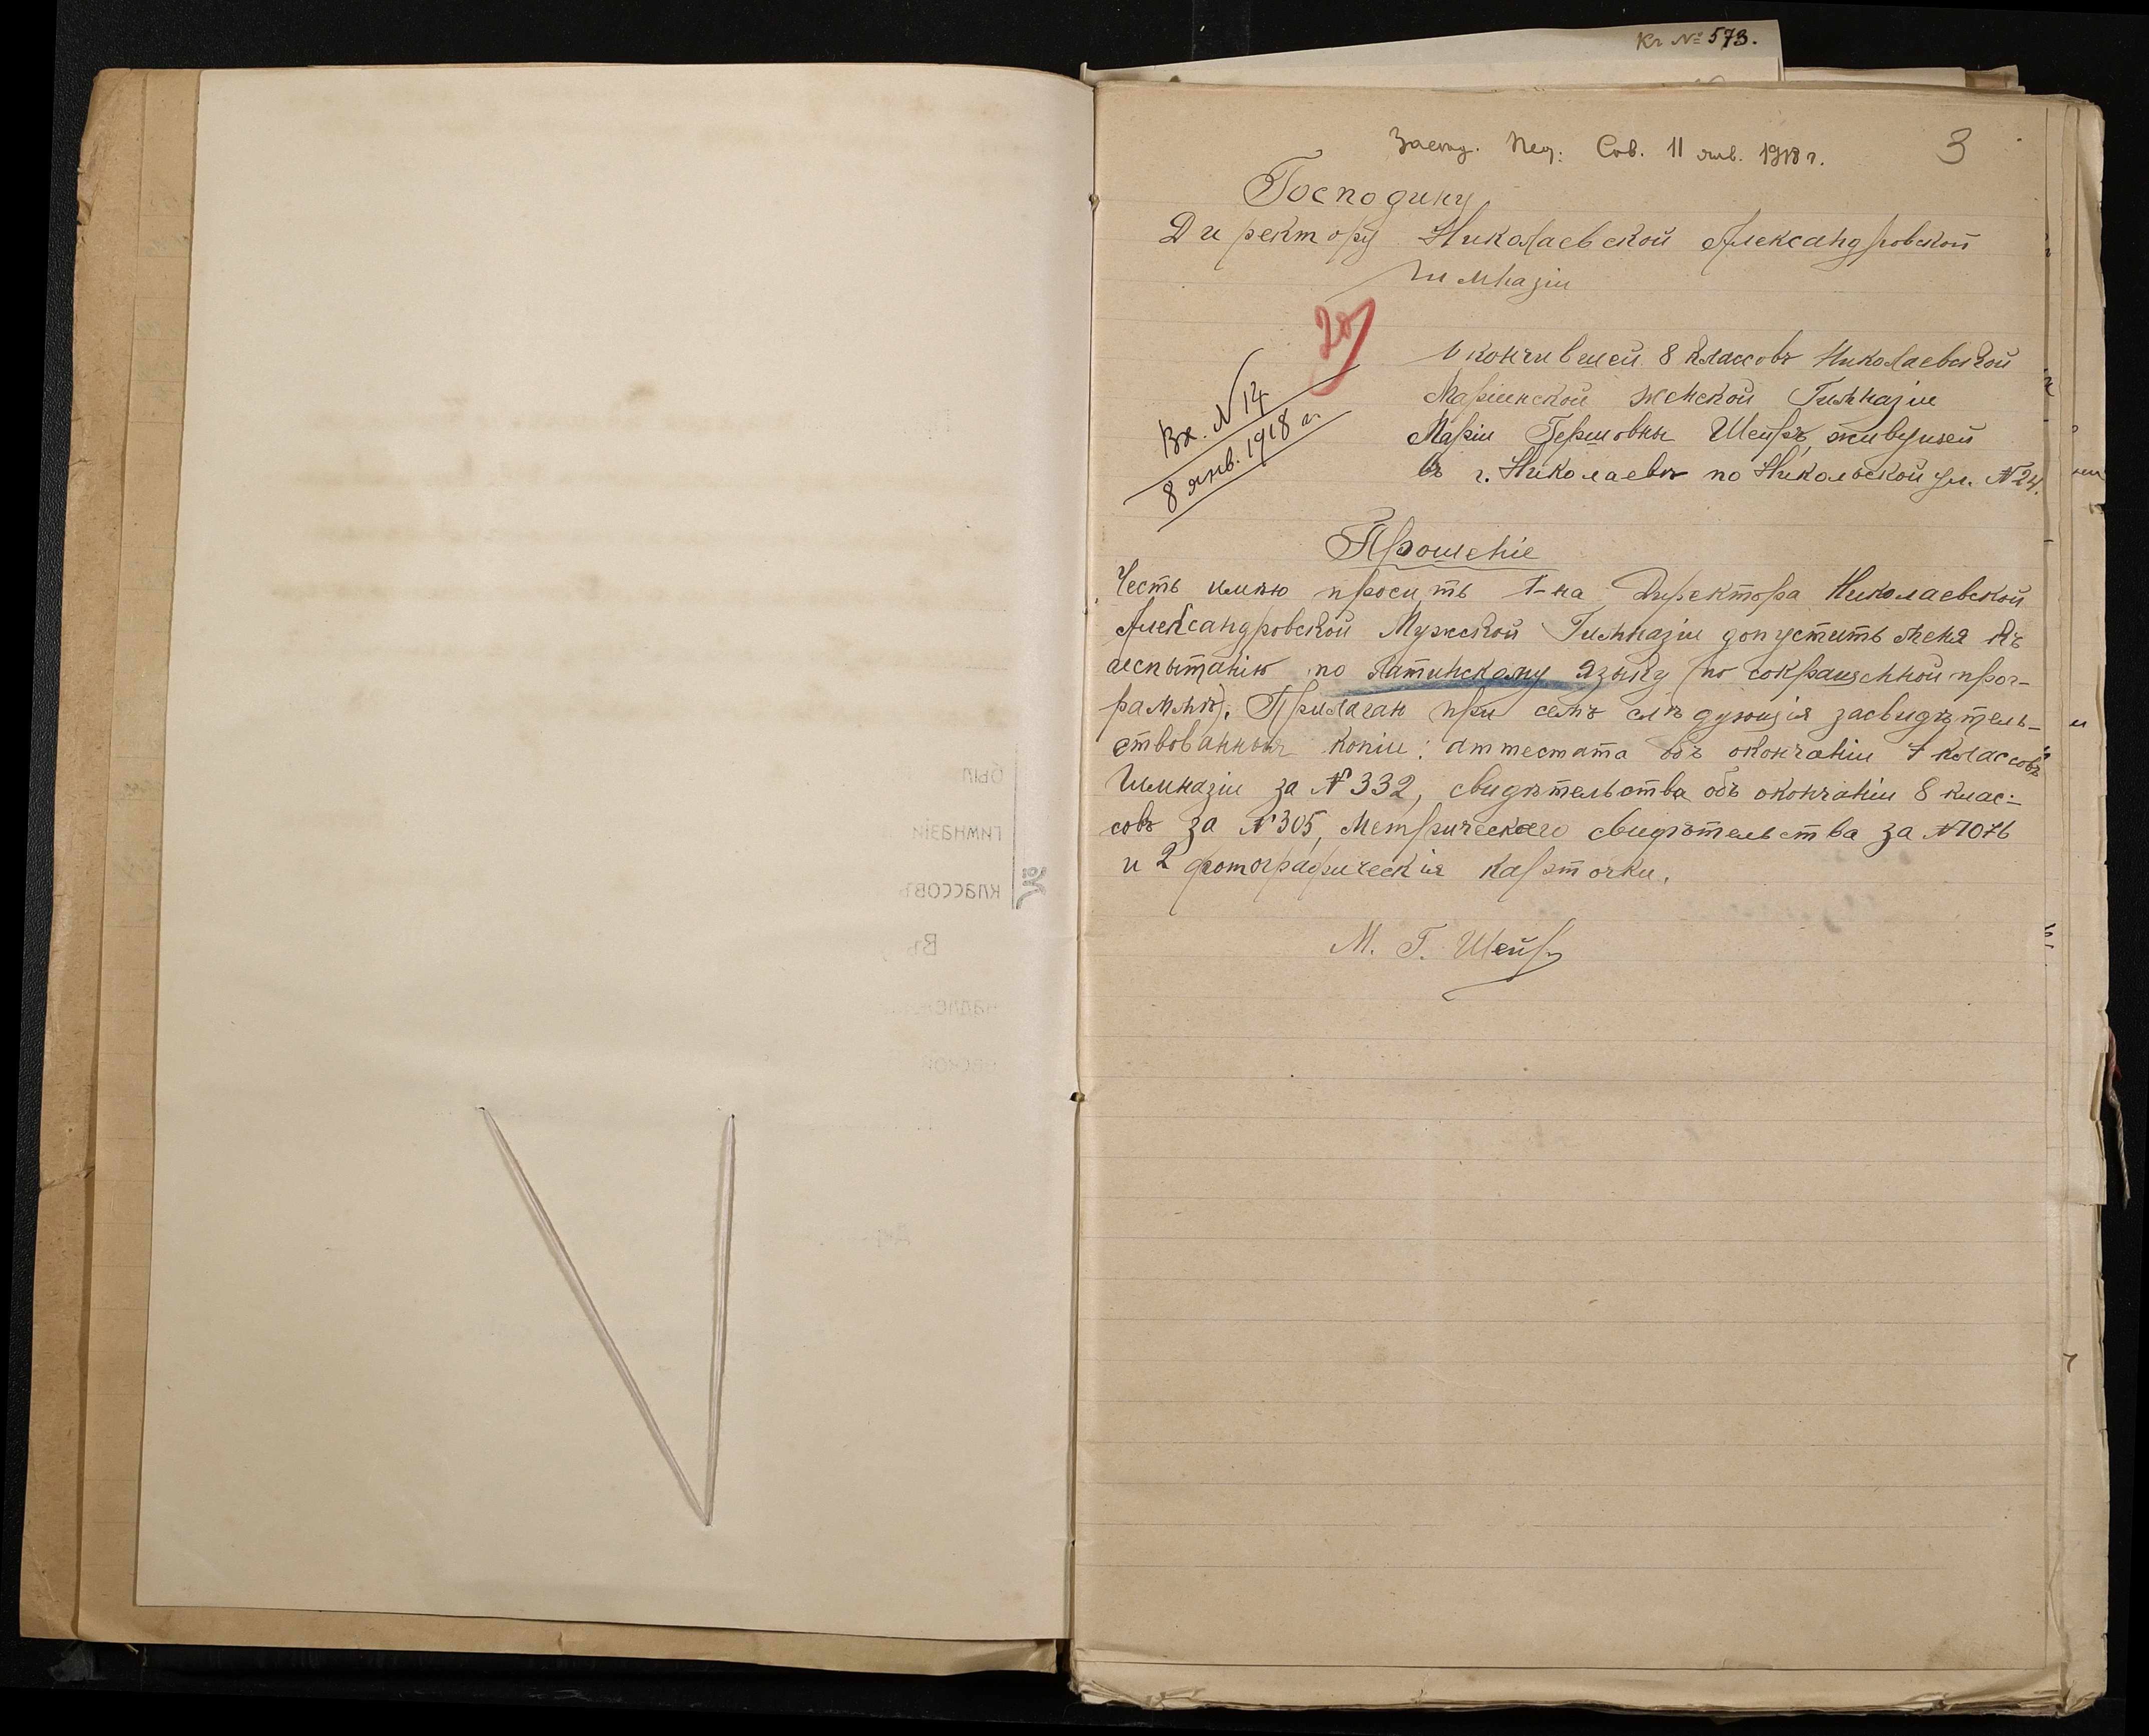 Кг № 573.
Засѣд. Пед. Сов. 11 янв. 1918 г.
3
Господину
Директору Николаевской Александровской
Гимназіи
20
Вх. N 14
8 янв. 1918 г.
Окончившей 8 классовъ Николаевской
Маріинской женской Гимназіи
Маріи Гершовны Шейръ, живущей
въ г. Николаевѣ по Никольской ул. N 24.
Прошеніе
Честь имѣю просить Г-на Директора Николаевской
Александровской Мужской Гимназіи допустить меня къ
испытанію по Латинскому языку (по сокращенной прог-
раммѣ). Прилагаю при семъ слѣдующія засвидѣтель-
ствованныя копіи: аттестата объ окончаніи 7 классовъ
Гимназіи за № 332, свидѣтельства объ окончаніи 8 клас-
совъ за № 305, Метрическаго свидѣтельства за № 1076
и 2 фотографическія карточки.
М. Г. Шейръ
был
гимназіи
классовъ
Въ